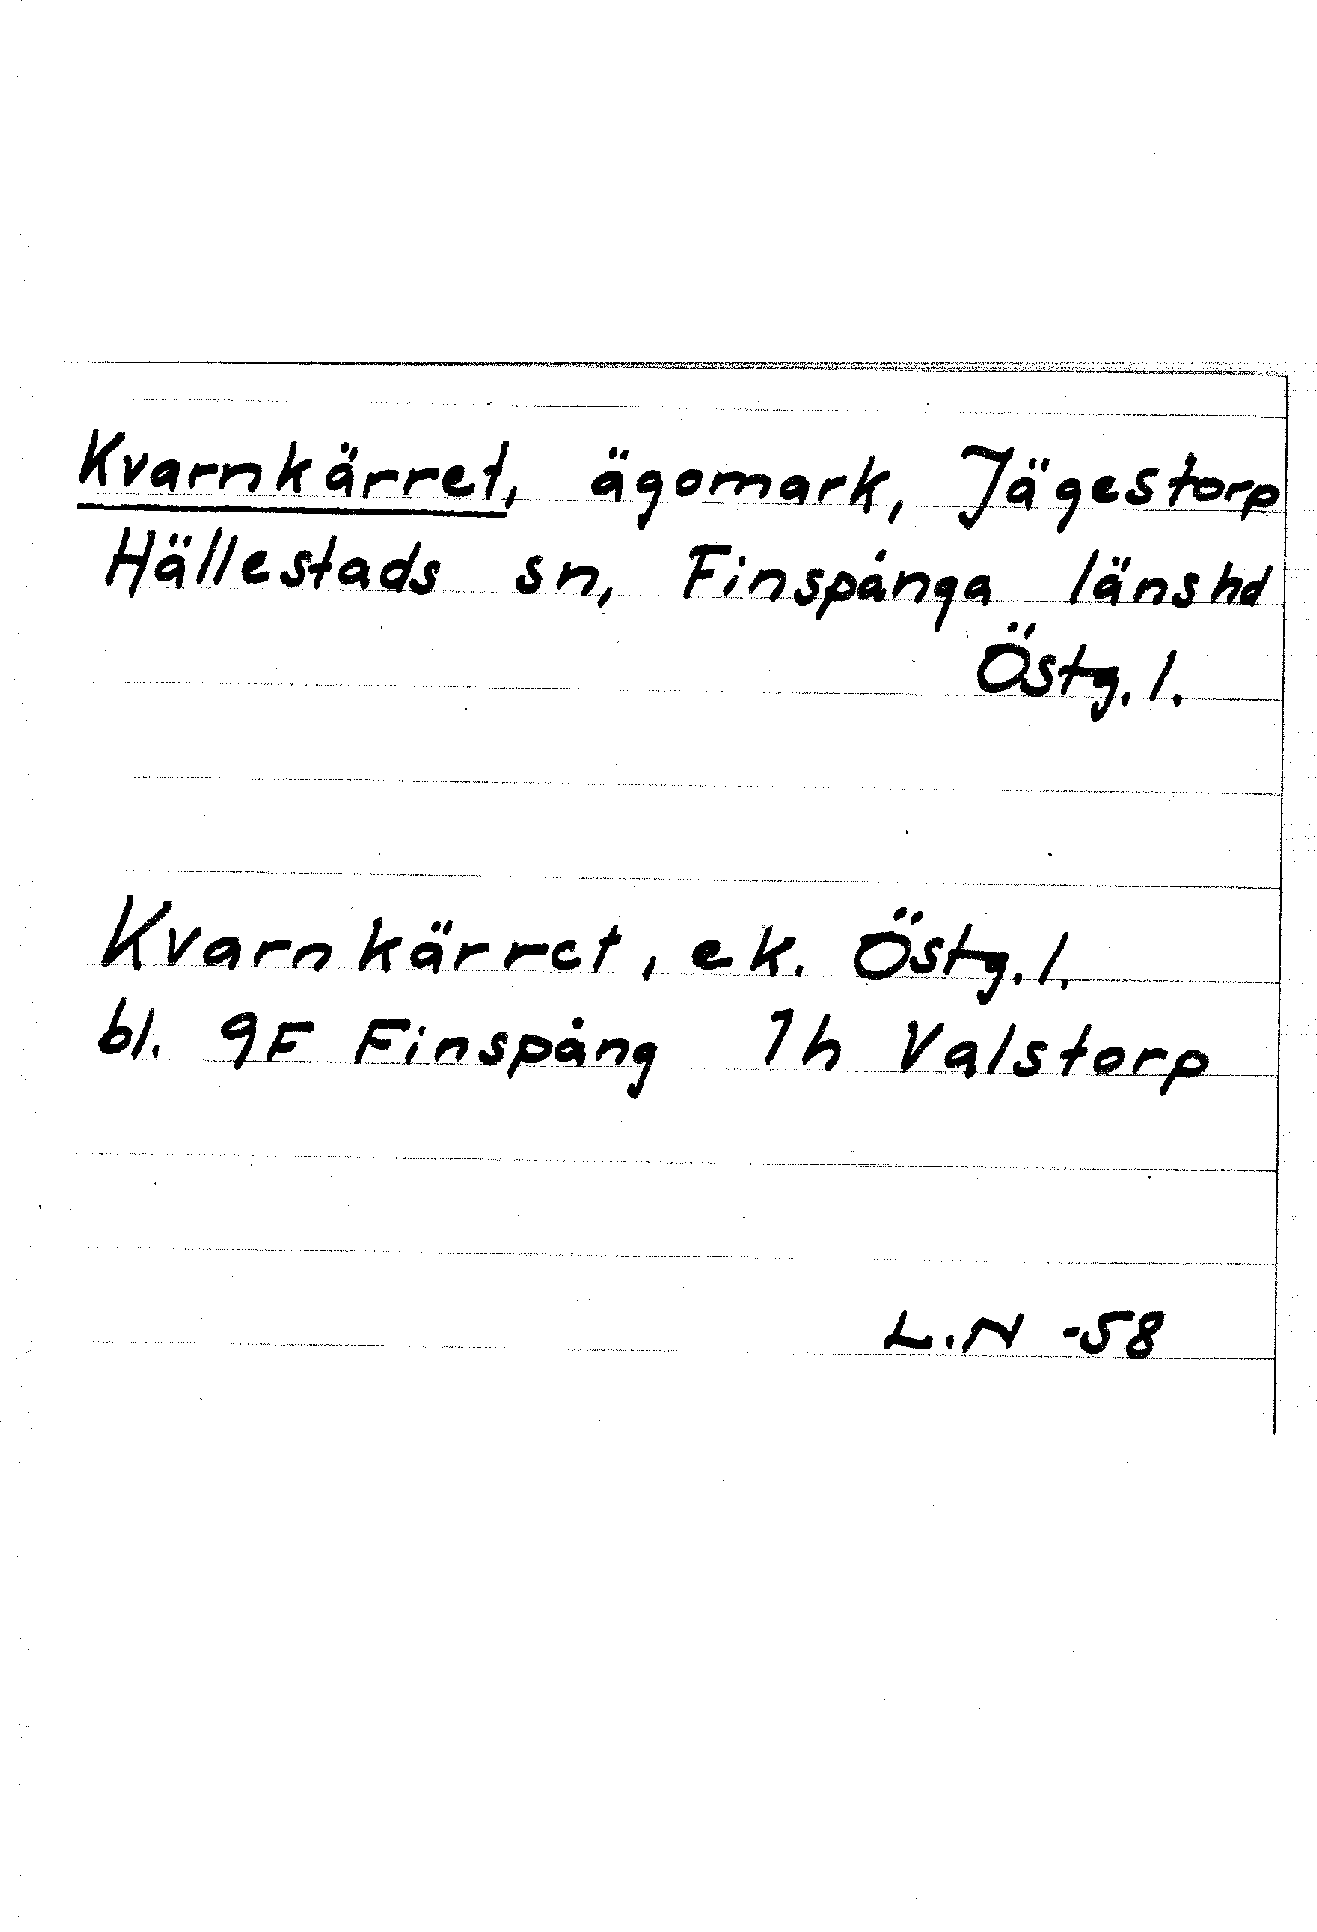 Kvarnkärret, ägomark, Jägestorp
Hällestads sn, Finspånga länshd
Östg. l.
Kvarnkärret, ek. Östg. l.
bl. 9F Finspång 1h Valstorp
L.N -58